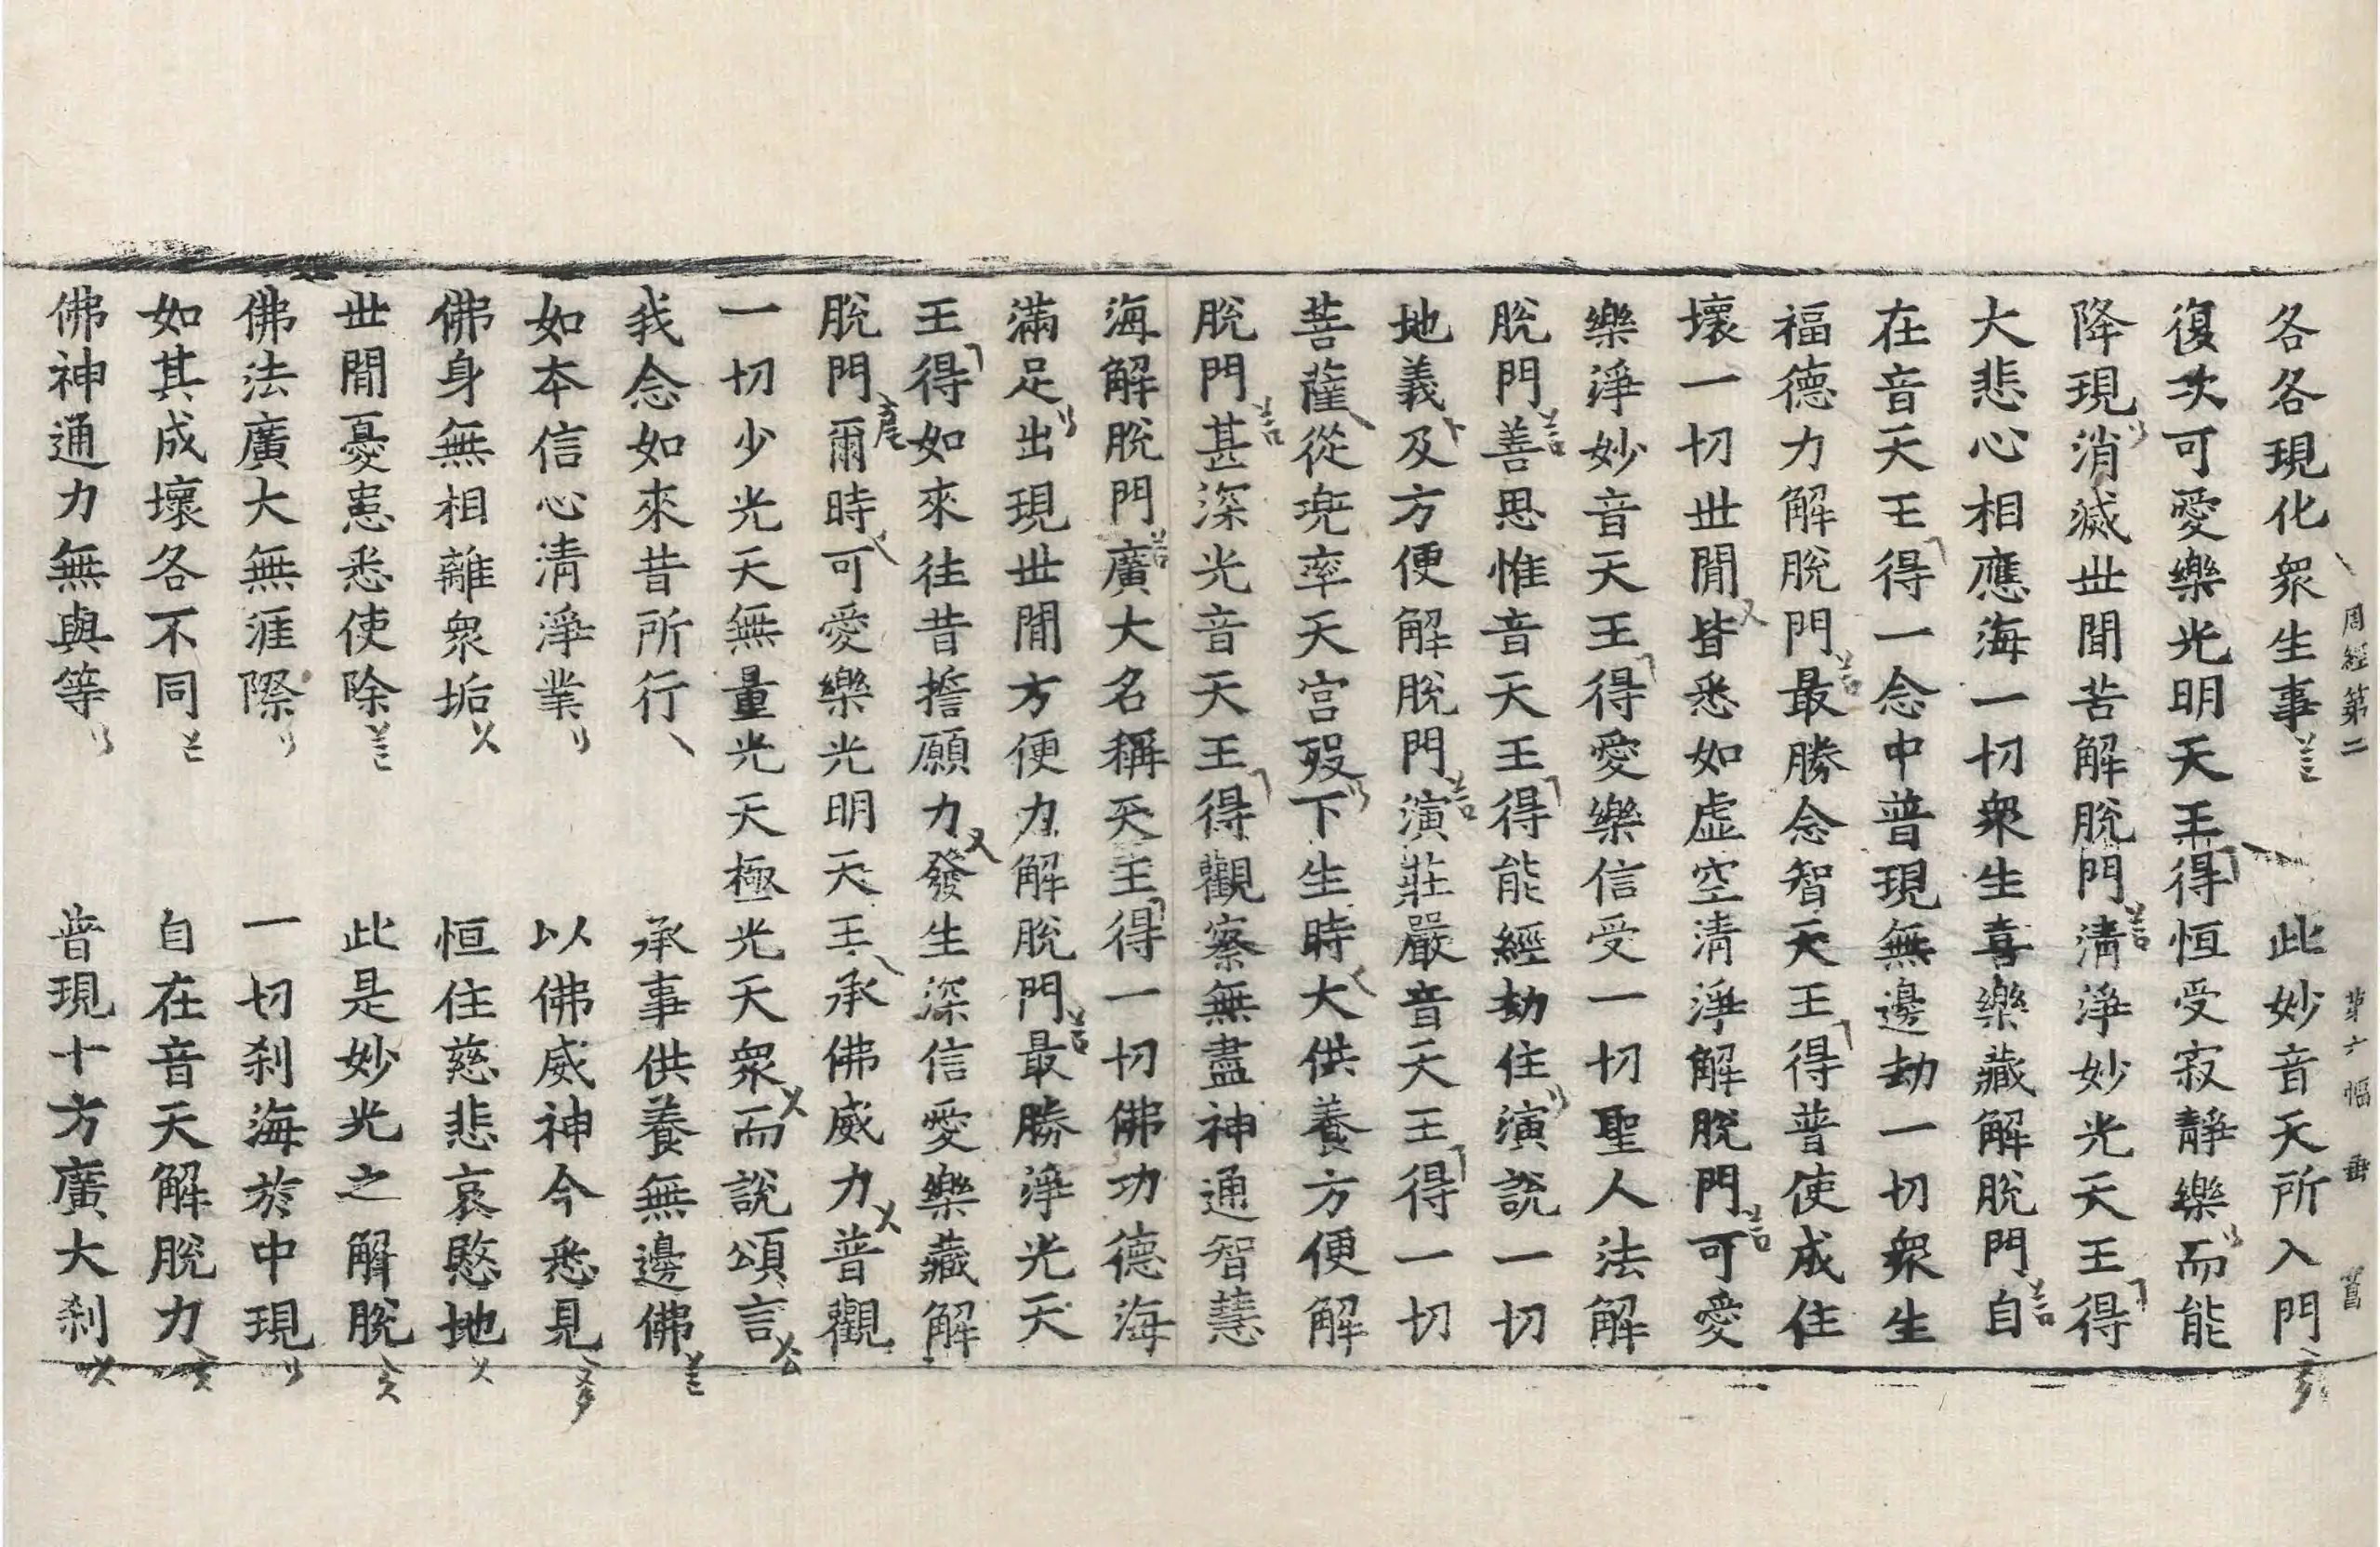 周經第二 第六幅 冊 菖
各各現化衆生事 此妙音天所入門
復次可愛樂光明天王得恒受寂靜樂而能
降現消滅世閒苦解脫門清淨妙光天王得
大悲心相應海一切衆生喜樂藏解脫門自
在音天王得一念中普現無邊劫一切衆生
福德力解脫門最勝念智天王得普使成住
壞一切世閒皆悉如虛空清淨解脫門可愛
樂淨妙音天王得愛樂信受一切聖人法解
脫門善思惟音天王得能經劫住演說一切
地義及方便解脫門演莊嚴音天王得一切
菩薩從兜率天宮歿下生時大供養方便解
脫門甚深光音天王得觀察無盡神通智慧
海解脫門廣大名稱天王得一切佛功德海
滿足出現世閒方便力解脫門最勝淨光天
王得如來往昔誓願力發生深信愛樂藏解
脫門爾時可愛樂光明天王承佛威力普觀
一切少光天無量光天極光天衆而說頌言
我念如來昔所行 承事供養無邊佛
如本信心清淨業 以佛威神今悉見
佛身無相離衆垢 恒住慈悲哀愍地
世閒憂患悉使除 此是妙光之解脫
佛法廣大無涯際 一切刹海於中現
如其成壞各不同 自在音天解脫力
佛神通力無與等 普現十方廣大刹